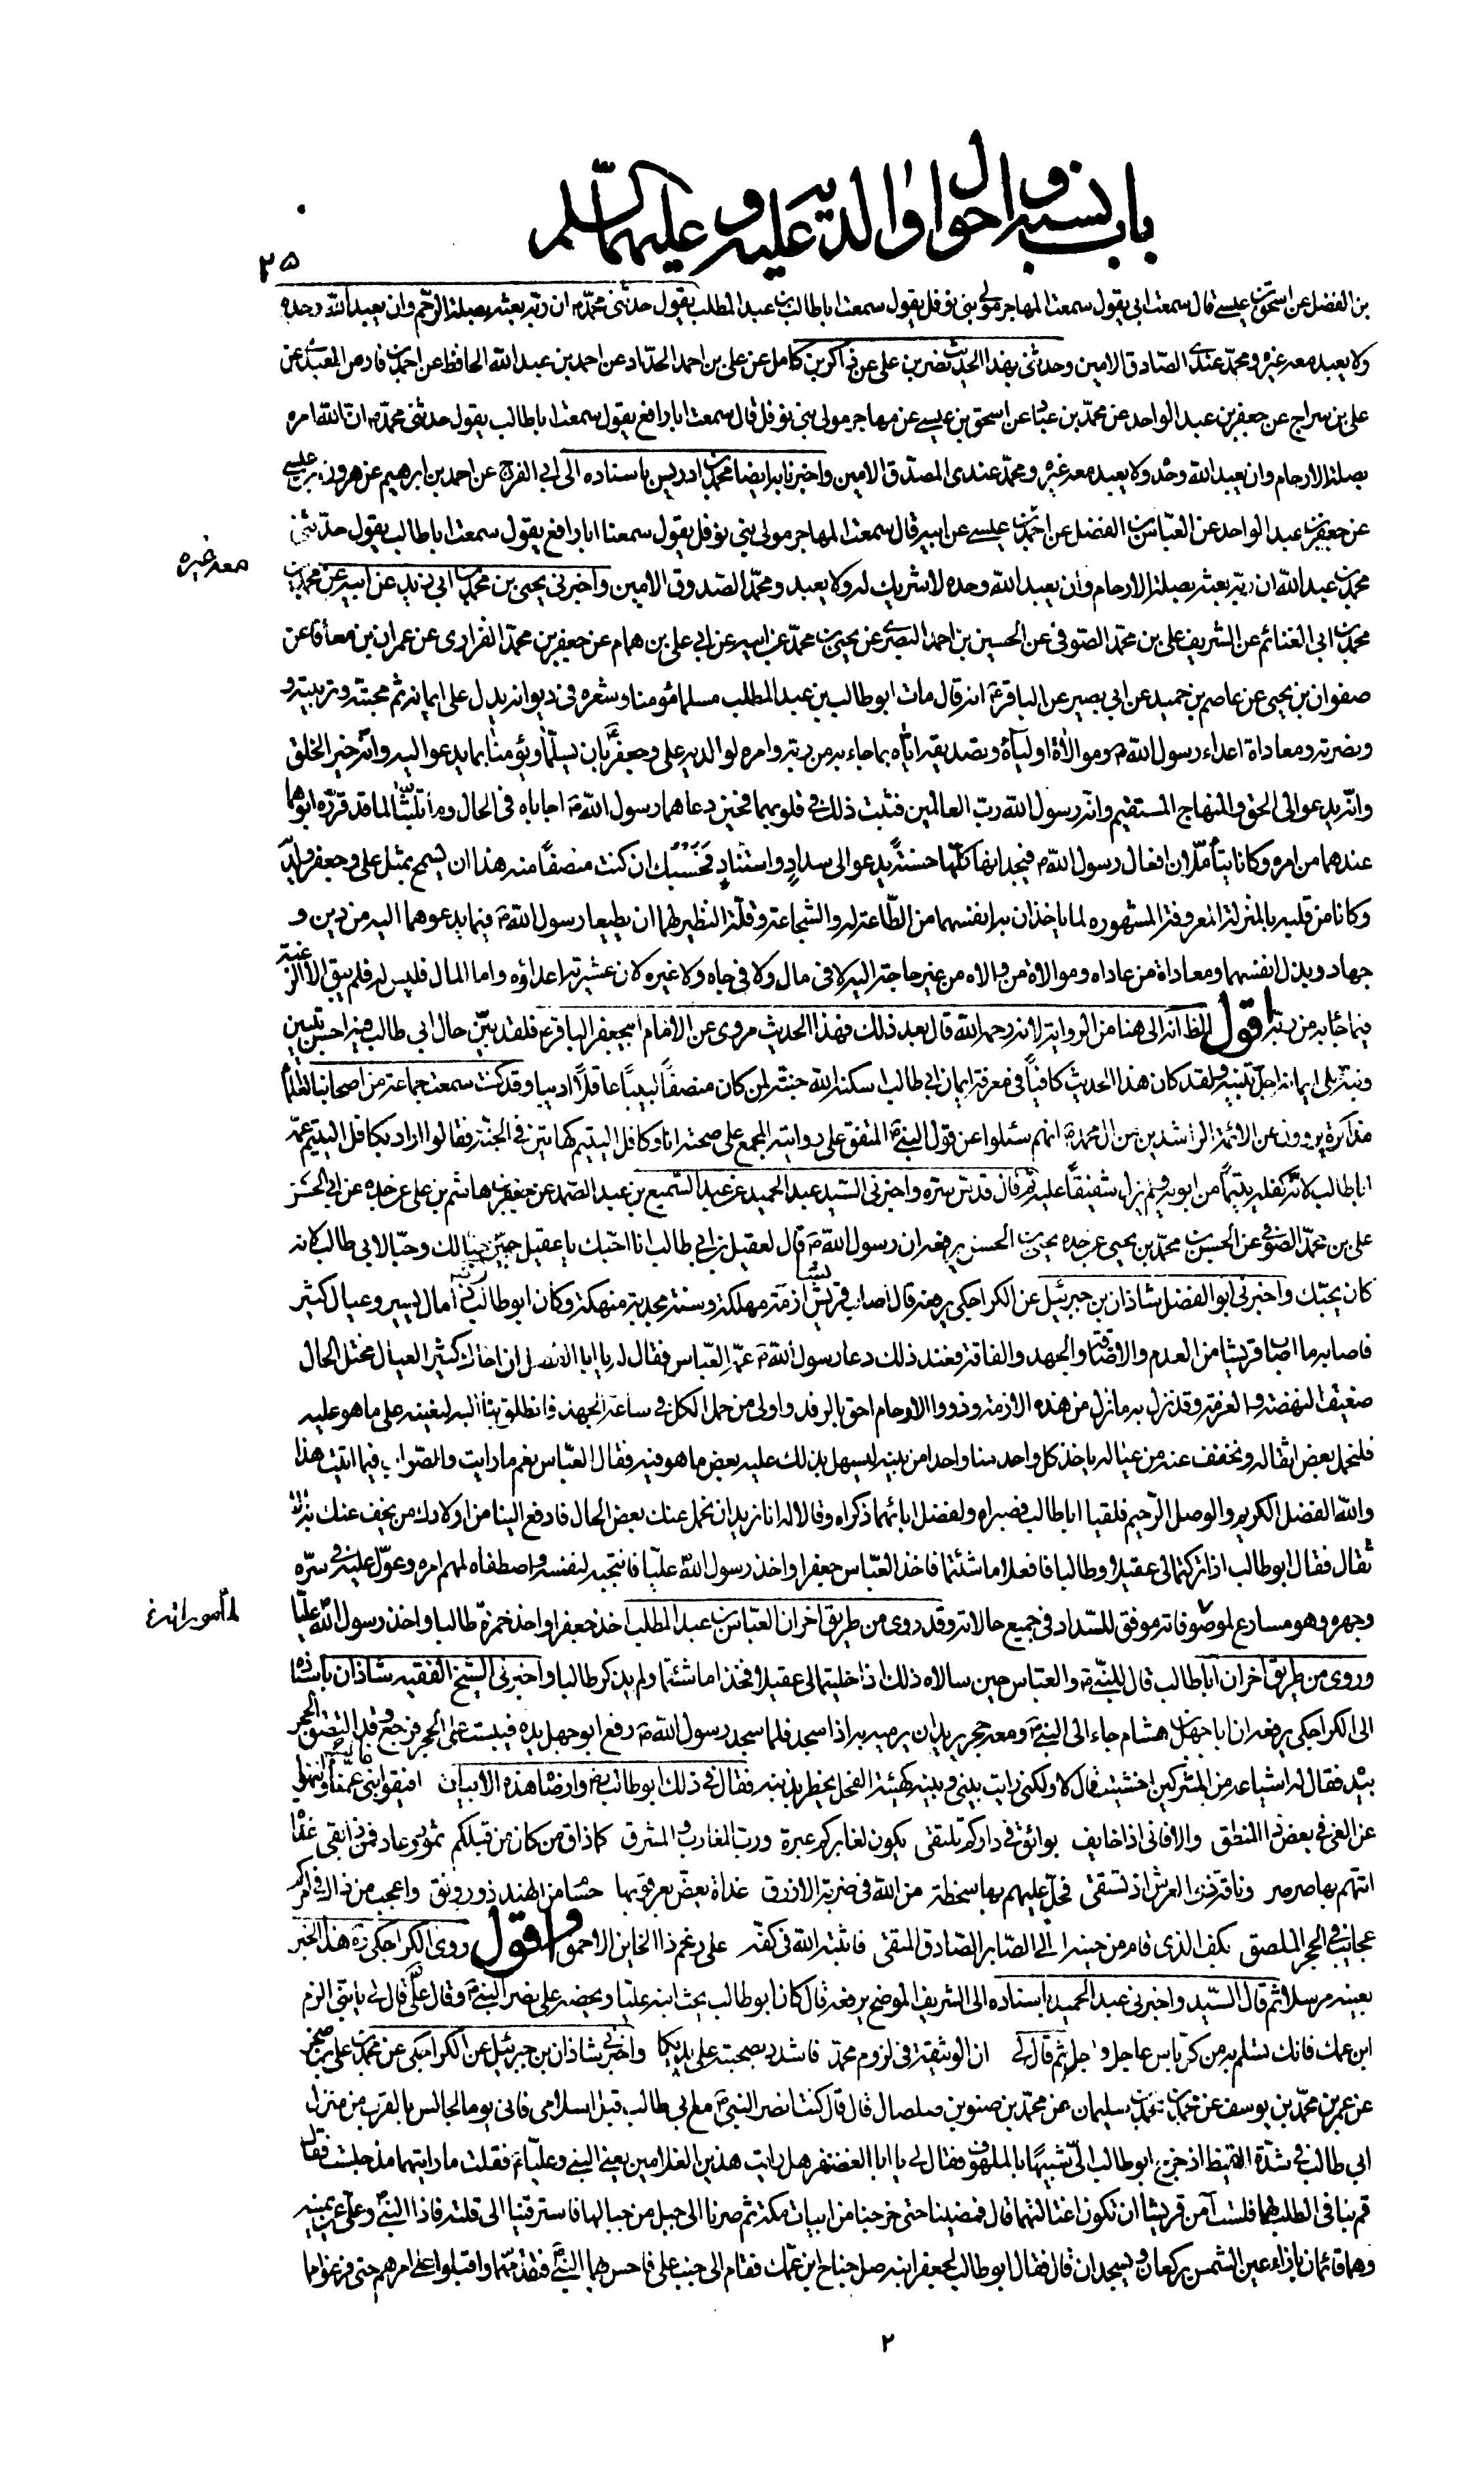 باب نسبه واحوال والديه عليه وعليهما السلم
٢٥
بن الفضل عن اسحق بن عيسى قال سمعت ابى يقول سمعت المهاجر مولى بنى نوفل يقول سمعت ابا طالب بن عبد المطلب يقول حدثنى محمد ص ان ربه بعثه بصلة الرحم وان يعبد الله وحده
ولا يعبد معه غيره ومحمد عندى الصادق الامين وحدثنى بهذا الحديث نصر بن على عن ذاكر بن كامل عن على بن احمد الحداد عن احمد بن عبد الله الحافظ عن احمد بن فارس المعبدى عن
على بن سراج عن جعفر بن عبد الواحد عن محمد بن عباد عن اسحق بن عيسى عن مهاجر مولى بنى نوفل قال سمعت ابا رافع يقول سمعت ابا طالب يقول حدثنى محمد ص ان الله امره
بصلة الارحام وان يعبد الله وحده ولا يعبد معه غيره ومحمد عندى المصدق الامين واخبرنا به ايضا محمد بن ادريس باسناده الى ابى الفرج عن احمد بن ابرهيم عن هرون بن عيسى
عن جعفر بن عبد الواحد عن العباس بن الفضل عن اسحق بن عيسى عن ابيه قال سمعت المهاجر مولى بنى نوفل يقول سمعت ابا رافع يقول سمعت ابا طالب يقول حدثنى
معه غيره
محمد بن عبد الله ان ربه بعثه بصلة الارحام وان يعبد الله وحده لا شريك له ولا يعبد ومحمد الصدوق الامين واخبرنى يحيى بن محمد بن ابى زيد عن ابيه عن محمد بن
محمد بن ابى الغنائم عن الشريف على بن محمد الصوفى عن الحسين بن احمد البصرى عن يحيى بن محمد عن ابيه عن ابى على بن همام عن جعفر بن محمد الفزارى عن عمران بن معافا عن
صفوان بن يحيى عن عاصم بن حميد عن ابى بصير عن الباقر ع انه قال مات ابو طالب بن عبد المطلب مسلما مؤمنا وشعره فى ديوانه يدل على ايمانه ثم محبته وتربيته و
ونصرته ومعاداة اعداء رسول الله ص وموالاة اوليائه وتصديقه اياه بما جاء به من ربه وامره لولديه على وجعفر بان يسلما ويؤمنا بما يدعو اليه وانه خير الخلق
وانه يدعو الى الحق والمنهاج المستقيم وانه رسول الله رب العالمين فثبت ذلك فى قلوبهما فحين دعاهما رسول الله ص اجاباه فى الحال وما تلبثا لما قد قرره ابوهما
عندهما من امره وكانا يتأملان افعال رسول الله ص فيجدانها كلها حسنة يدعو الى سداد واسناد فحسبك ان كنت منصفا منه هذا ان يسمح بمثل على وجعفر ولديه
وكانا من قلبه بالمنزلة المعروفة المشهوره لما ياخذان به انفسهما من الطاعة له والشجاعة وقلة النظير لهما ان يطيعا رسول الله ص فيما يدعوهما اليه من دين و
جهاد وبذل انفسهما ومعاداة من عاداه وموالاة من والاه من غير حاجة اليه لا فى مال ولا فى جاه ولا غيره لان عشيرته اعداؤه واما المال فليس له فلم يبق الا الرغبة
فيما جاء به من ربه اقول الظ انه الى هنا من الرواية لانه رحمه الله قال بعد ذلك فهذا الحديث مروى عن الامام ابى جعفر الباقر ع فلقد بين حال ابى طالب فيه احسن تبيين
ونبه على ايمانه اجل تنبيه ولقد كان هذا الحديث كافيا فى معرفة ايمان ابى طالب اسكنه الله جنته لمن كان منصفا لبيبا عاقلا اديبا وقد كنت سمعت جماعة من اصحابنا العلماء
مذاكرة يروون عن الائمة الراشدين من ال محمد ص انهم سئلوا عن قول النبى ص المتفق على روايته المجمع على صحته انا وكافل اليتيم كهاتين فى الجنة فقالوا اراد بكافل اليتيم عمه
ابا طالب لانه كفله يتيما من ابويه ولم يزل شفيقا عليه ثم قال قدس سره واخبرنى السيد عبد الحميد عن عبد السميع بن عبد الصمد عن جعفر بن هاشم بن على عن جده عن ابى الحسن
على بن محمد الصوفى عن الحسن بن محمد بن يحيى عن جده يحيى بن الحسن يرفعه ان رسول الله ص قال لعقيل بن ابى طالب انا احبك يا عقيل حبين حبا لك وحبا لابى طالب لانه
كان يحبك واخبرنى ابو الفضل شاذان بن جبرئيل عن الكراجكى يرفعه قال اصاب قريشا ازمة مهلكة وسنة مجدبة منهكة وكان ابو طالب رض ذا مال يسير وعيال كثير
فاصابه ما اصاب قريشا من العدم والاضاقة والجهد والفاقة فعند ذلك دعا رسول الله ص عمه العباس فقال له يا ابا الفضل ان اخاك كثير العيال مختل الحال
ضعيف النهضة والعزمة وقد نزل به ما نزل من هذه الازمة وذووا الارحام احق بالرفد واولى من حمل الكل فى ساعة الجهد فانطلق بنا اليه لنعينه على ما هو عليه
فلنحمل بعض اثقاله ونخفف عنه من عياله ياخذ كل واحد منا واحدا من بنيه ليسهل بذلك عليه بعض ما هو فيه فقال العباس نعم ما رايت والصواب فيما اتيت هذا
والله الفضل الكريم والوصل الرحيم فلقيا ابا طالب فصبراه ولفضل ابائهما ذكراه وقالا له انا نريد ان نحمل عنك بعض الحال فادفع الينا من اولادك من يخف عنك به الا
ثقال فقال ابو طالب اذا تركتما لى عقيلا وطالبا فافعلا ما شئتما فاخذ العباس جعفرا واخذ رسول الله عليا فانتجبه لنفسه واصطفاه لمهم امره وعول عليه فى سره
وجهره وهو مسارع لموصوفاته موفق للسداد فى جميع حالاته وقد روى من طريق اخر ان العباس بن عبد المطلب اخذ جعفرا واخذ حمزة طالبا واخذ رسول الله عليا
لمأموراته خ
وروى من طريق اخر ان ابا طالب قال للنبى ص والعباس حين سالاه ذلك اذا خليتما لى عقيلا فخذا ما شئتما ولم يذكر طالبا واخبرنى الشيخ الفقيه شاذان باسناده
الى الكراجكى يرفعه ان ابا جهل بن هشام جاء الى النبى ص ومعه حجر يريد ان يرميه به اذا سجد فلما سجد رسول الله ص رفع ابو جهل يده فيبست على الحجر فرجع وقد التصق الحجر
بيده فقال له اشياعه من المشركين اخشيت قال لا ولكنى رايت بينى وبينه كهيئة الفحل يخطر بذنبه فقال فى ذلك ابو طالب رض وارضاه هذه الابيات افيقوا بنى عمنا وانتهوا
عن الغى فى بعض ذا المنطق والا فانى اذا خايف بوائق فى داركم تلتقى يكون لغابركم عبرة ورب المغارب والمشرق كما ذاق من كان من قبلكم ثمود وعاد فمن ذا بقى غداة
اتتهم بها صرصر وناقة ذى العرش اذ تستقى فحل عليهم بها سخطة من الله فى ضربة الازرق غداة يعض بعرقوبها حسام من الهند ذو رونق واعجب من ذاك فى امركم
عجائب فى الحجر الملصق بكف الذى قام من حينه الى الصابر الصادق المتقى فاثبته الله فى كفه على رغم ذا الخاين الاحمق واقول روى الكراجكى ره هذا الخبر
بعينه مرسلا ثم قال السيد واخبرنى عبد الحميد باسناده الى الشريف الموضح يرفعه قال كان ابو طالب يحث ابنه عليا ويحضه على نصر النبى ص وقال على قال لى يا بنى الزم
ابن عمك فانك تسلم به من كل باس عاجل واجل ثم قال لى ان الوثيقة فى لزوم محمد فاشدد بصحبته على يديكا واخبرنى شاذان بن جبرئيل عن الكراجكى عن محمد بن على بن صخر
عن عمر بن محمد بن يوسف عن محمد بن سليمان عن محمد بن صنو بن صلصال قال قال كنت انصر النبى ص مع ابى طالب قبل اسلامى فانى يوما لجالس بالقرب من منزل
ابى طالب فى شدة القيظ اذ خرج ابو طالب الى شبيها بالملهوف فقال لى يا ابا الغضنفر هل رايت هذين الغلامين يعنى النبى وعليا ع فقلت ما رايتهما مذ جلست فقال
قم بنا فى الطلب لهما فلست آمن قريشا ان تكون اغتالتهما قال فمضينا حتى خرجنا من ابيات مكة ثم صرنا الى جبل من جبالها فاسترقينا الى قلته فاذا النبى ص وعلى عن يمينه
وهما قائمان بازاء عين الشمس يركعان ويسجدان قال فقال ابو طالب لجعفر ابنه صل جناح ابن عمك فقام الى جنب على فاحس بهما النبى ص فتقدمهما واقبلوا على امرهم حتى فرغوا مما
٢